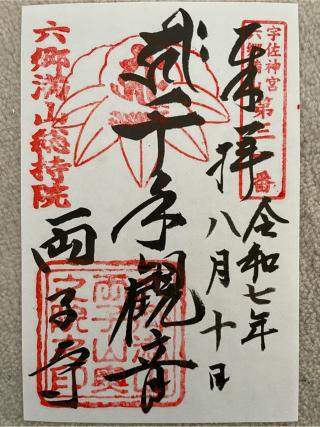 奉拝
令和七年
八月十日
宇佐神宮
六郷満
第三
番
千手観音
六郷満山総持院
両子寺
両子山奥
之院之印